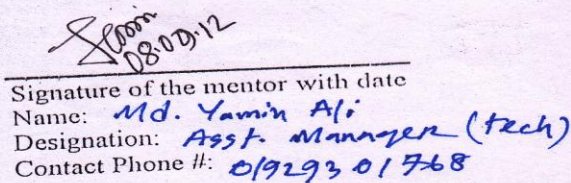 08.09.12
Signature of the mentor with date
Name: Md. Yamin Ali
Designation: Asst. Manager (tech)
Contact Phone #: 01929301768